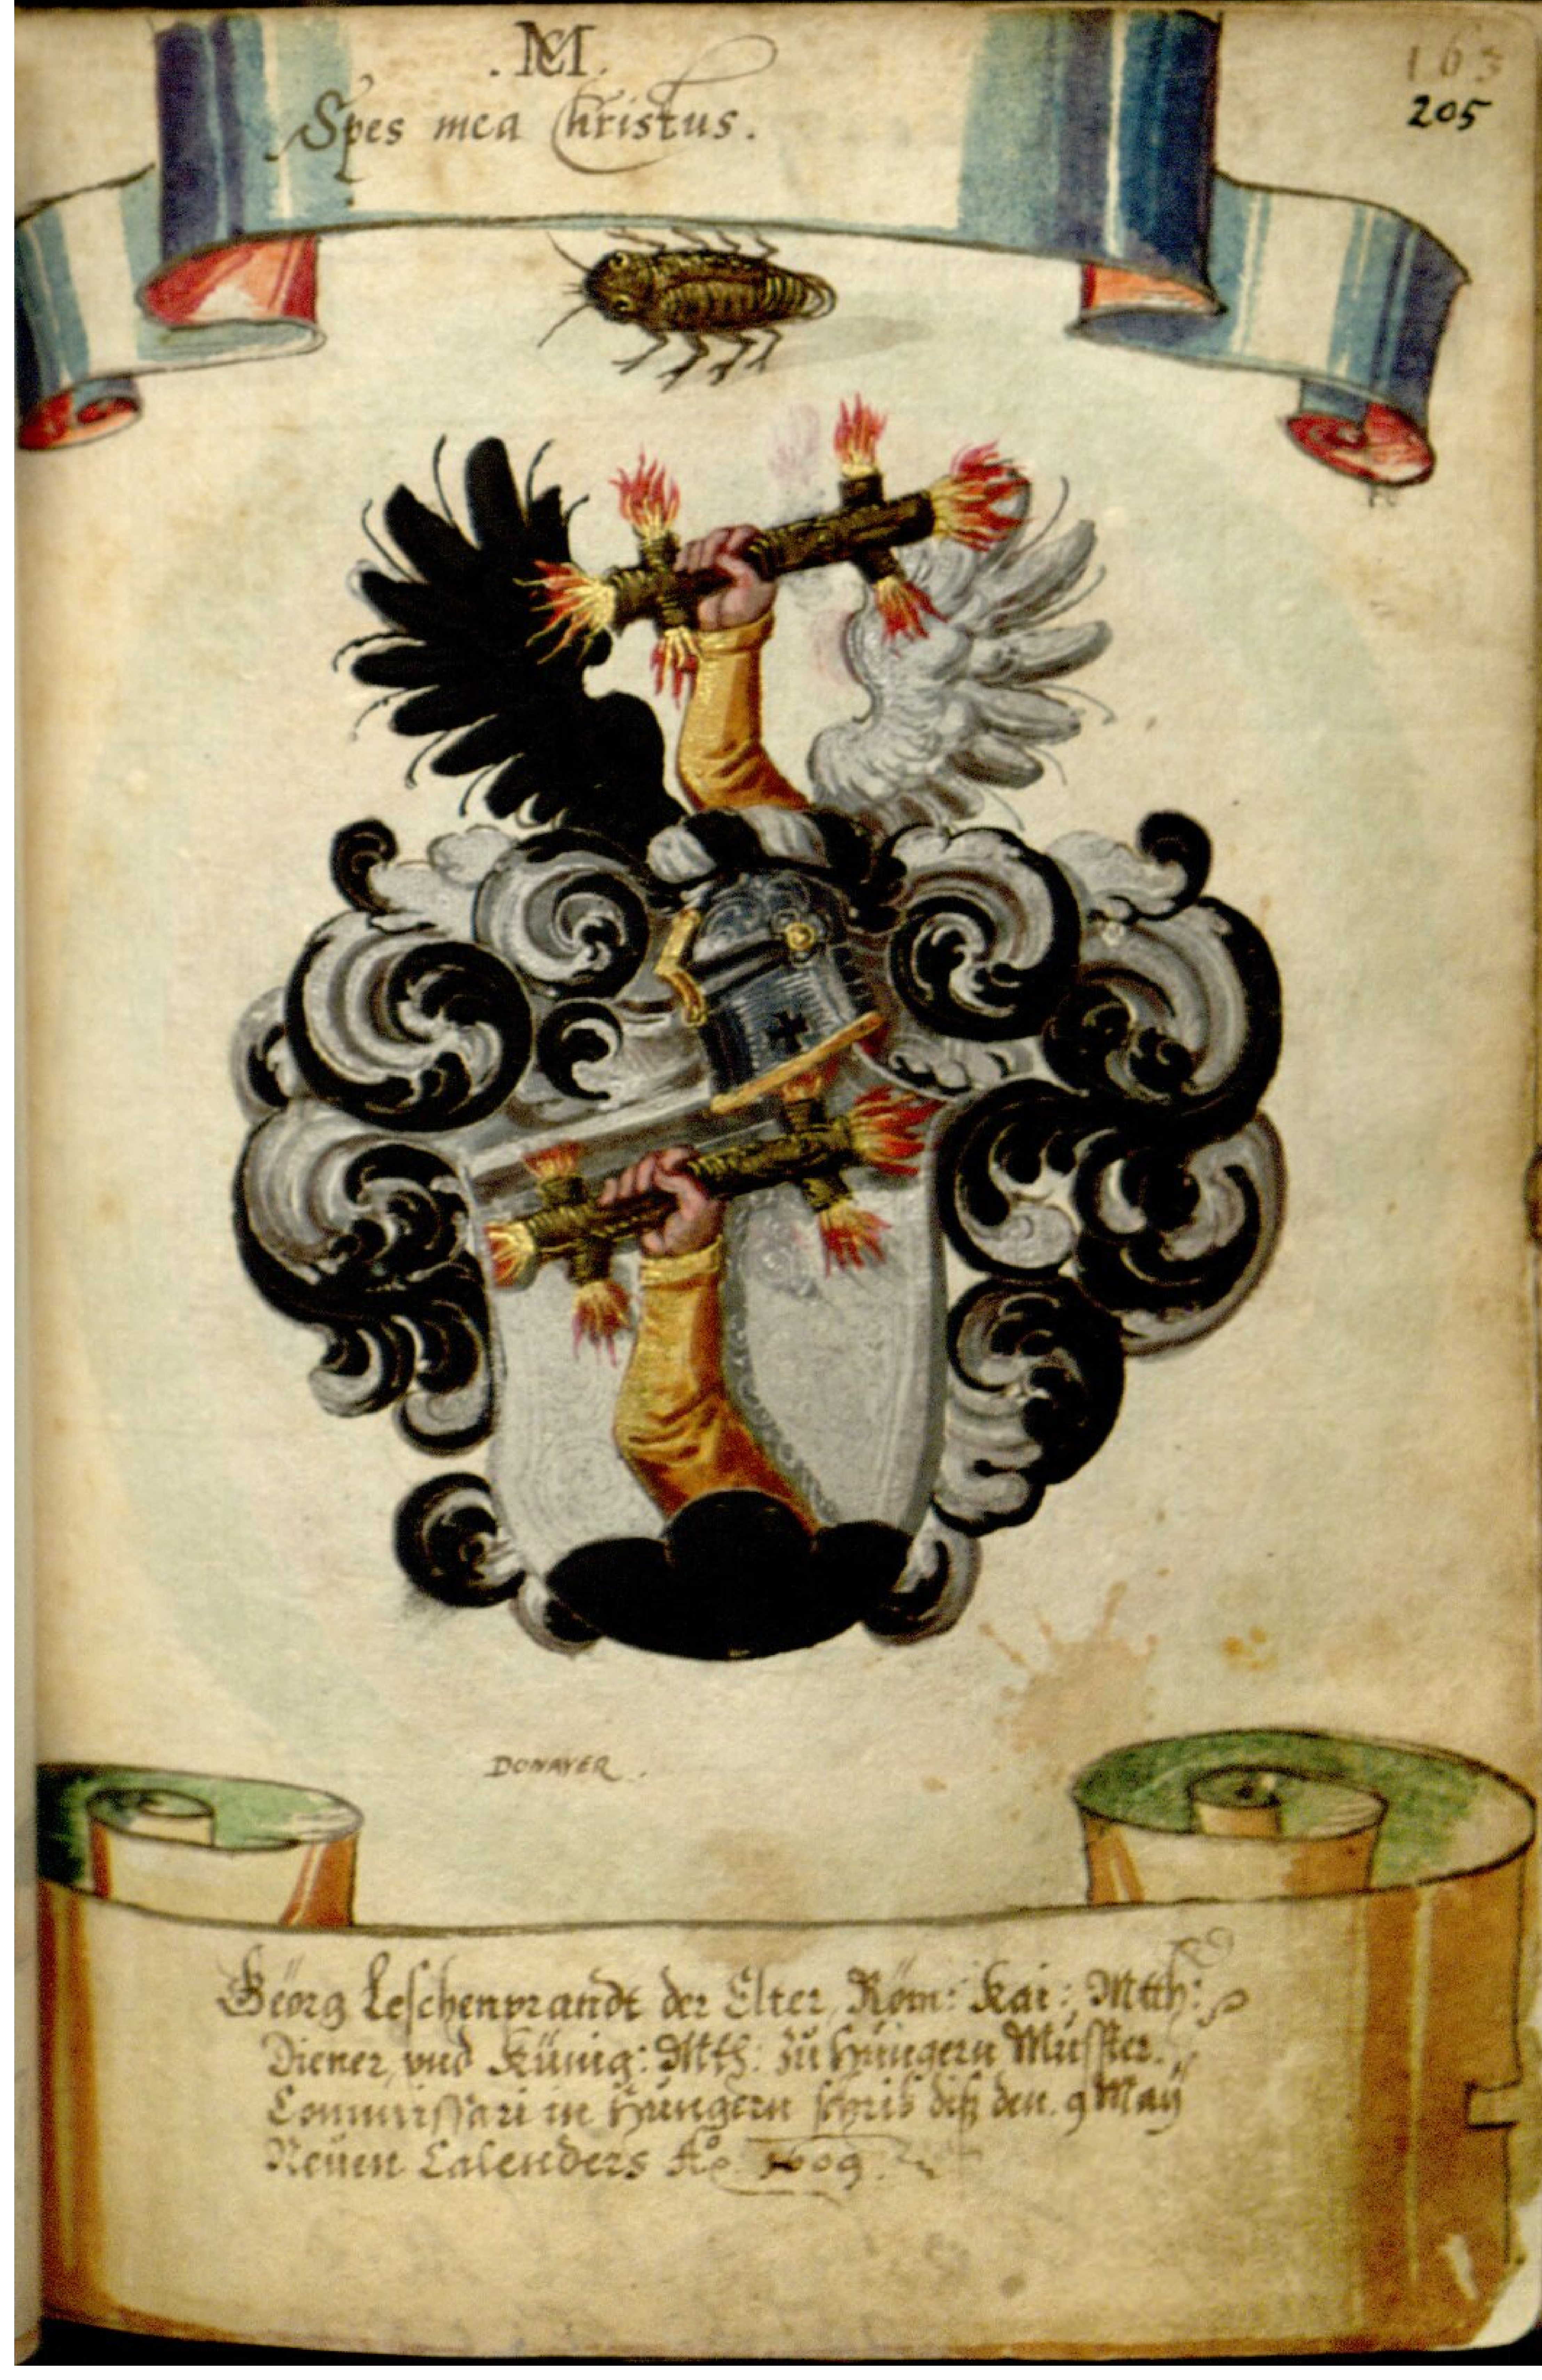 . MC .
163
Spes mea Christus.
205
DONAVER .
Geörg Leschenprandt der Elter, Röm: Kai: Mtth:
Diener, vnd Künig: Mtth: zu Hüngern Musster.
Commissari in Hüngern schrib diß den. 9 Maÿ
Neüen Calenders Aº. 1609.